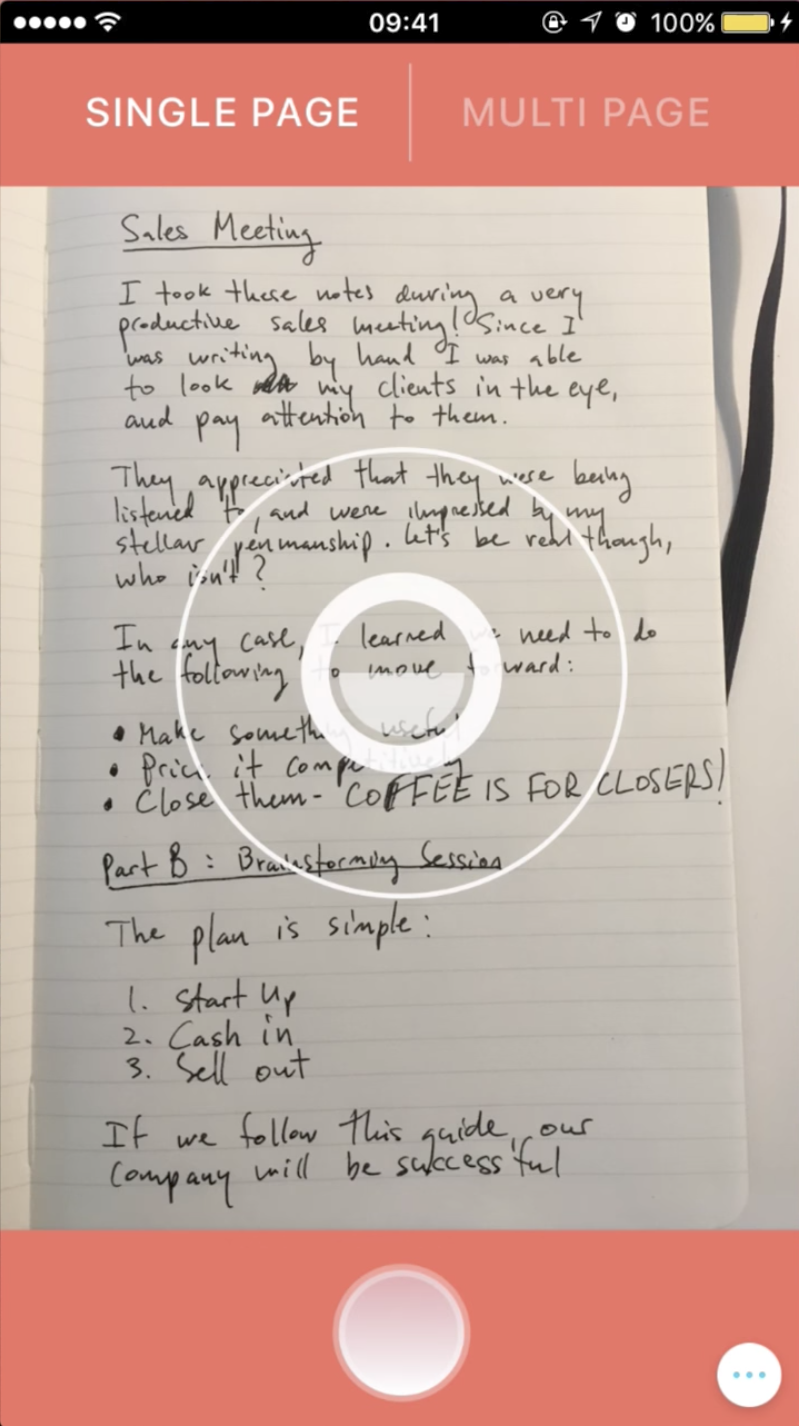 09:41
100%
SINGLE PAGE
MULTI PAGE
Sales Meeting
I took these notes during a very
productive sales meeting! Since I
was writing by hand I was able
to look my clients in the eye,
and pay attention to them.
They appreciated that they were being
listened to, and were impressed by my
stellar penmanship. Let's be real though,
who isn't?
In any case, I learned we need to do
the following to move forward:
• Make something useful
• Price it competitively
• Close them- COFFEE IS FOR CLOSERS!
Part B: Brainstorming Session
The plan is simple:
1. Start Up
2. Cash in
3. Sell out
If we follow this guide, our
company will be successful